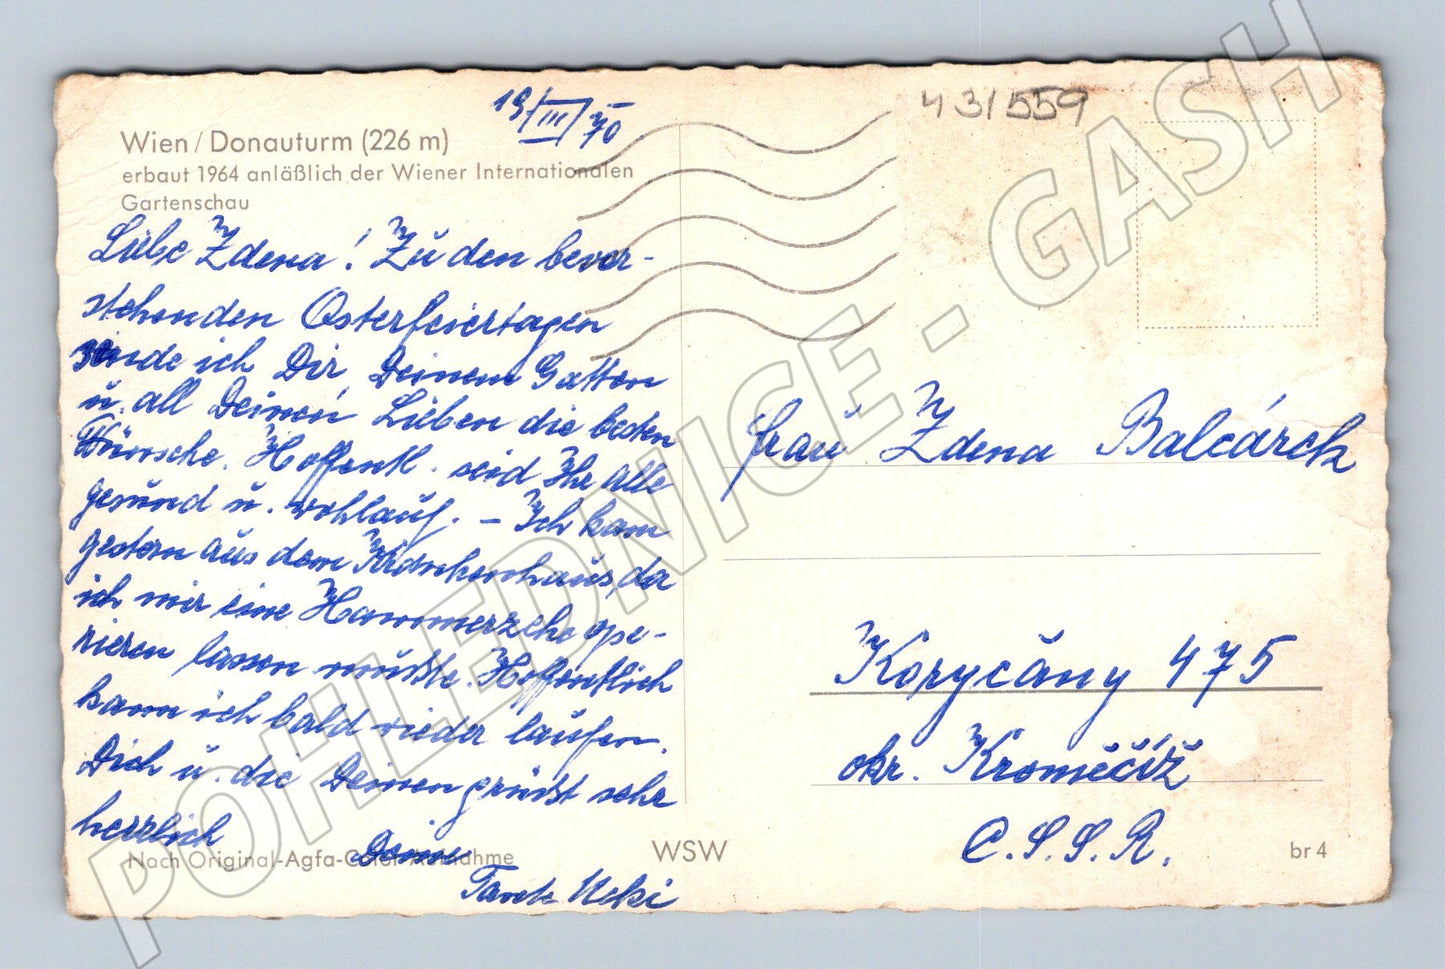 19/III/70
431559
Wien/Donauturm (226 m)
erbaut 1964 anläßlich der Wiener Internationalen
Gartenschau
Liebe Zdena! Zu den bevor-
stehenden Osterfeiertagen
sende ich Dir, Deinem Gatten
u. all Deinen Lieben die besten
Wünsche. Hoffentl. seid Ihr alle
gesund u. wohlauf. – Ich kam
gestern aus dem Krankenhaus, da
ich mir eine Hammerzehe ope-
rieren lassen mußte. Hoffentlich
kann ich bald wieder laufen.
Dich u. die Deinen grüßt sehr
herzlich Deine
Tante
Frau Zdena Balcárek
Koryčany 475
okr. Kroměčíž
C.S.S.R.
Nach Original-Agfa-Color-Aufnahme
WSW
br 4
POHLEDNICE - GASH